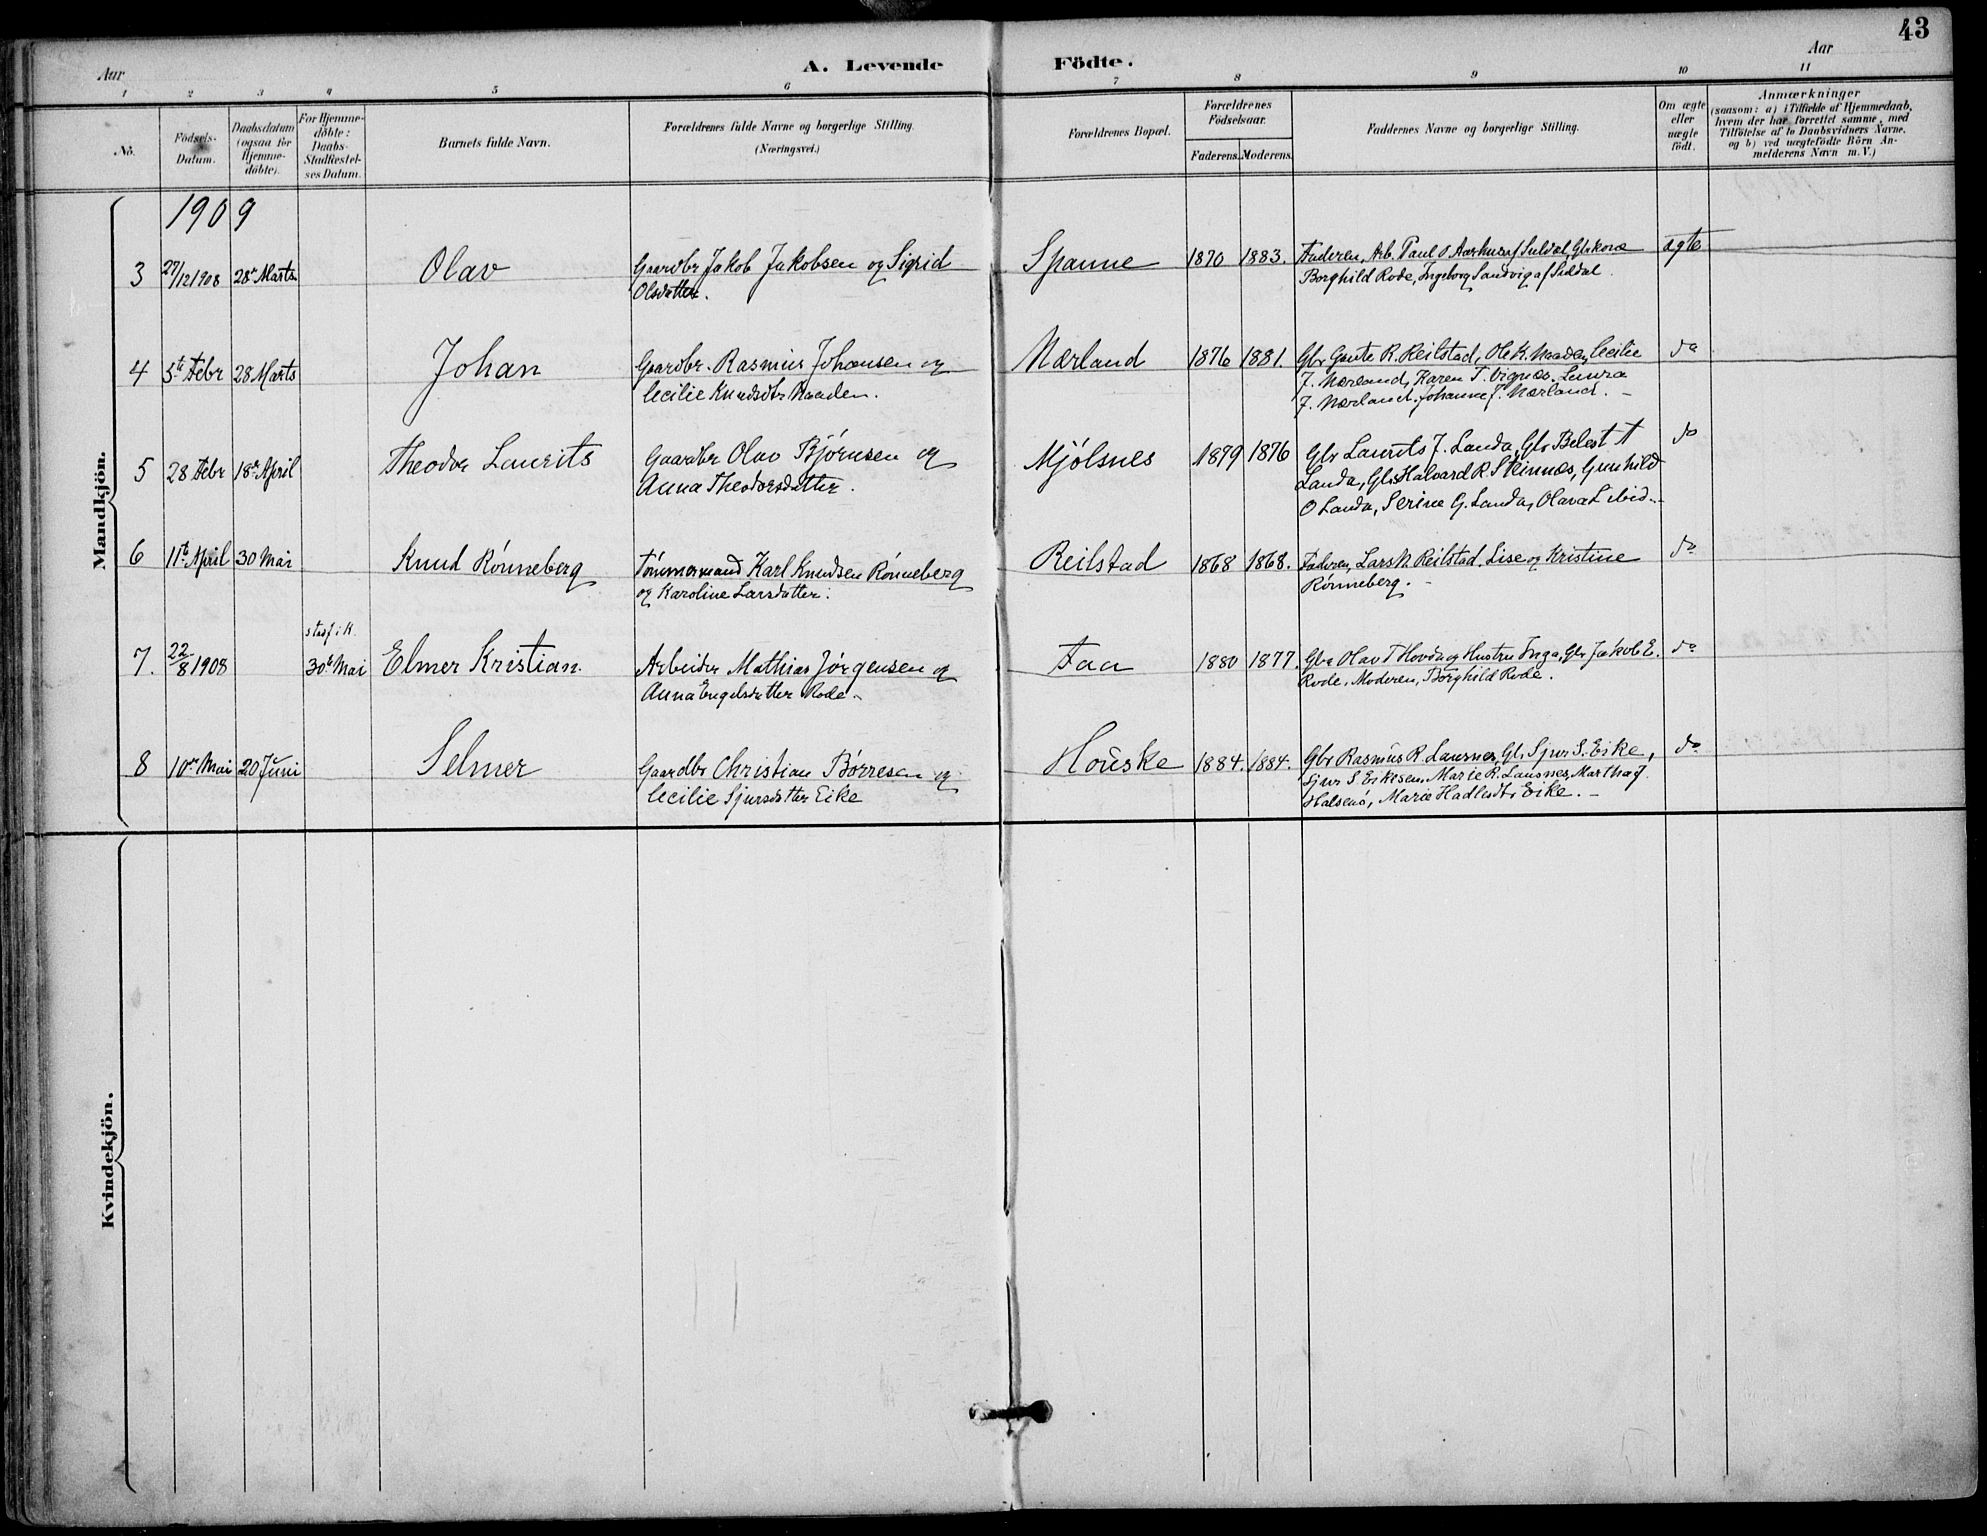 43
Aar
A. Levende Födte.
Aar
1 2 3 4 5 6 7 8 9 10 11
No.
Födsels-
Datum.
Daabsdatum
(ogsaa for
Hjemme-
döbte).
For Hjemme-
döbte:
Daabs-
Stadfæstel-
ses Datum.
Barnets fulde Navn.
Forældrenes fulde Navne og borgerlige Stilling.
(Næringsvei.)
Forældrenes Bopæl.
Forældrenes
Födselsaar.
Faderens. Moderens.
Faddernes Navne og borgerlige Stilling.
Om ægte
eller
uægte
födt.
Anmærkninger
(saasom: a) i Tilfælde af Hjemmedaab,
hvem der har forrettet samme, med
Tilföielse af to Daabsvidners Navne,
og b) ved uægtefödte Börn An-
melderens Navn m. V.)
Mandkjön.
1909
3 27/12 1908 28de Marts Olav Gaardbr Jakob Jakobsen og Sigrid
Olsdatter.
Spanne 1870 1883. Faderen, Arb. Paul O Aarhus af Suldal, Gbkone
Borghild Rode, Ingeborg Sandvig af Suldal.
ægte
4 5te Febr 28 Marts Johan Gaardbr. Rasmus Johansen og
Cecilie Knudsdtr Naaden.
Nærland 1876 1881. Gbr Gaute R. Reilstad, Ole K. Naaden, Cecilie
J. Nærland, Karen T. Vignæs, Laura
J. Nærland, Johanne J. Nærland.
do
5 28 Febr 18de April Theodor Laurits Gaardbr Olav Bjørnsen og
Anna Theodorsdatter.
Mjølsnes 1879 1876 Gbr Laurits J. Landa, Gbr Belest A
Landa, Gbr Halvard R. Steinnæs, Gunhild
O Landa, Serine G. Landa, Olava L ibid.
do
6 11te April 30 Mai Knud Rønneberg Tømmermand Karl Knudsen Rønneberg
og Karoline Larsdatter.
Reilstad 1868 1868. Faderen, Lars N. Reilstad, Lise og Kristine
Rønneberg.
do
7. 22/8 1908 stadf. i K.
30te Mai Elmer Kristian. Arbeider Mathias Jørgensen og
Anna Engelsdatter Rode
Faa 1880 1877. Gbr Olav T Hovda og Hustru Inga, Gbr Jakob E.
Rode, Moderen, Borghild Rode.
do
8 10de Mai 20 Juni Selmer Gaardbr Christian Børresen og
Cecilie Sjursdatter Eike
Houske 1884. 1884. Gbr Rasmus R. Lausnes, Gbr Sjur S. Eike,
Sjur S Eikesen, Marie R. Lausnes, Martha J.
Halsenø, Marie Hadlesdtr Eike.
do
Kvindekjön.